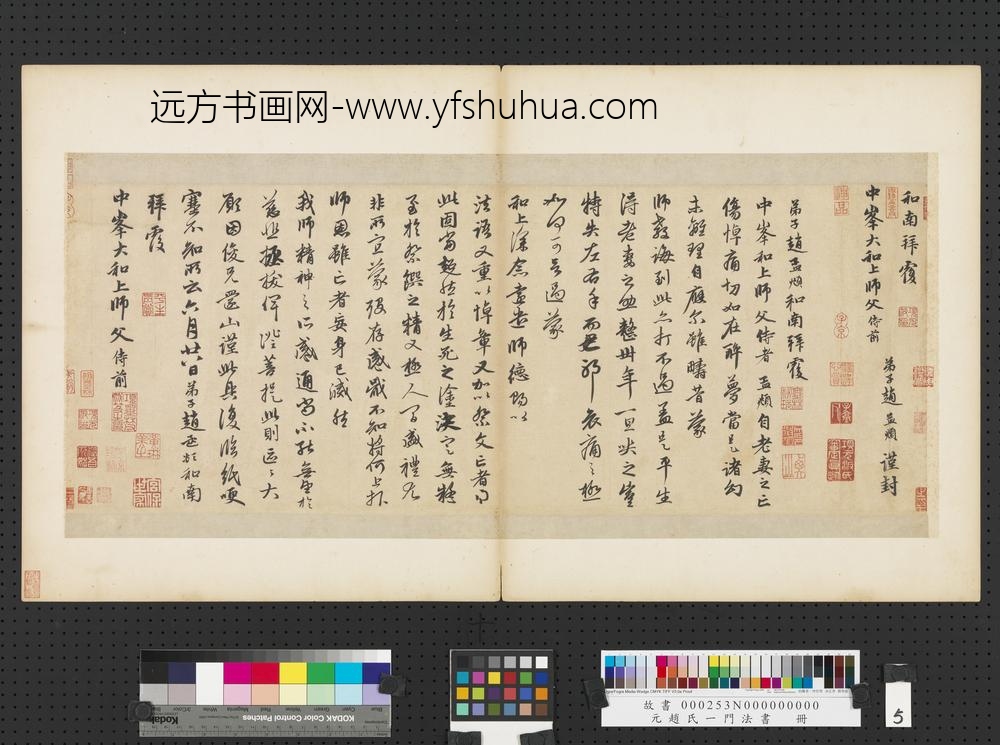 远方书画网-www.yfshuhua.com
和南拜覆
中峯大和上師父侍前
弟子趙孟頫謹封
弟子趙孟頫和南拜覆
中峯和上師父侍者孟頫自老妻之亡
傷悼痛切如在醉夢當是諸幻
未離理自應尔雖疇昔蒙
師教誨到此亦打不過蓋是平生
得老妻之助整卅年一旦哭之豈
特失左右手而已耶哀痛之極
如何可言過蒙
和上深念遠遣師德賜以
法語又重以悼章又加以祭文亡者得
此固當超然於生死之塗決定無疑
至於祭饌之精又極人間盛禮尤
非所宜蒙歿存感戴不知將何上報
師恩雖亡者妄身已滅然
我師精神之所感通尚不能無望於
慈悲拯拔俾證菩提此則區區大
願因俊兄還山謹此具復臨紙哽
塞不知所云六月廿八日弟子趙孟頫和南
拜覆
中峯大和上師父侍前
KODAK Color Control Patches
故書 000253N000000000
元趙氏一門法書 冊
5